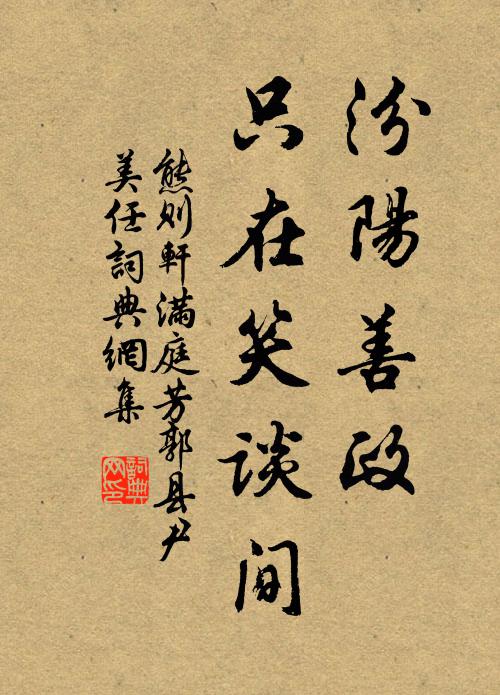 汾陽善政
只在笑談間
熊则軒滿庭芳郭县尹
美任詞典網集
詞典网印